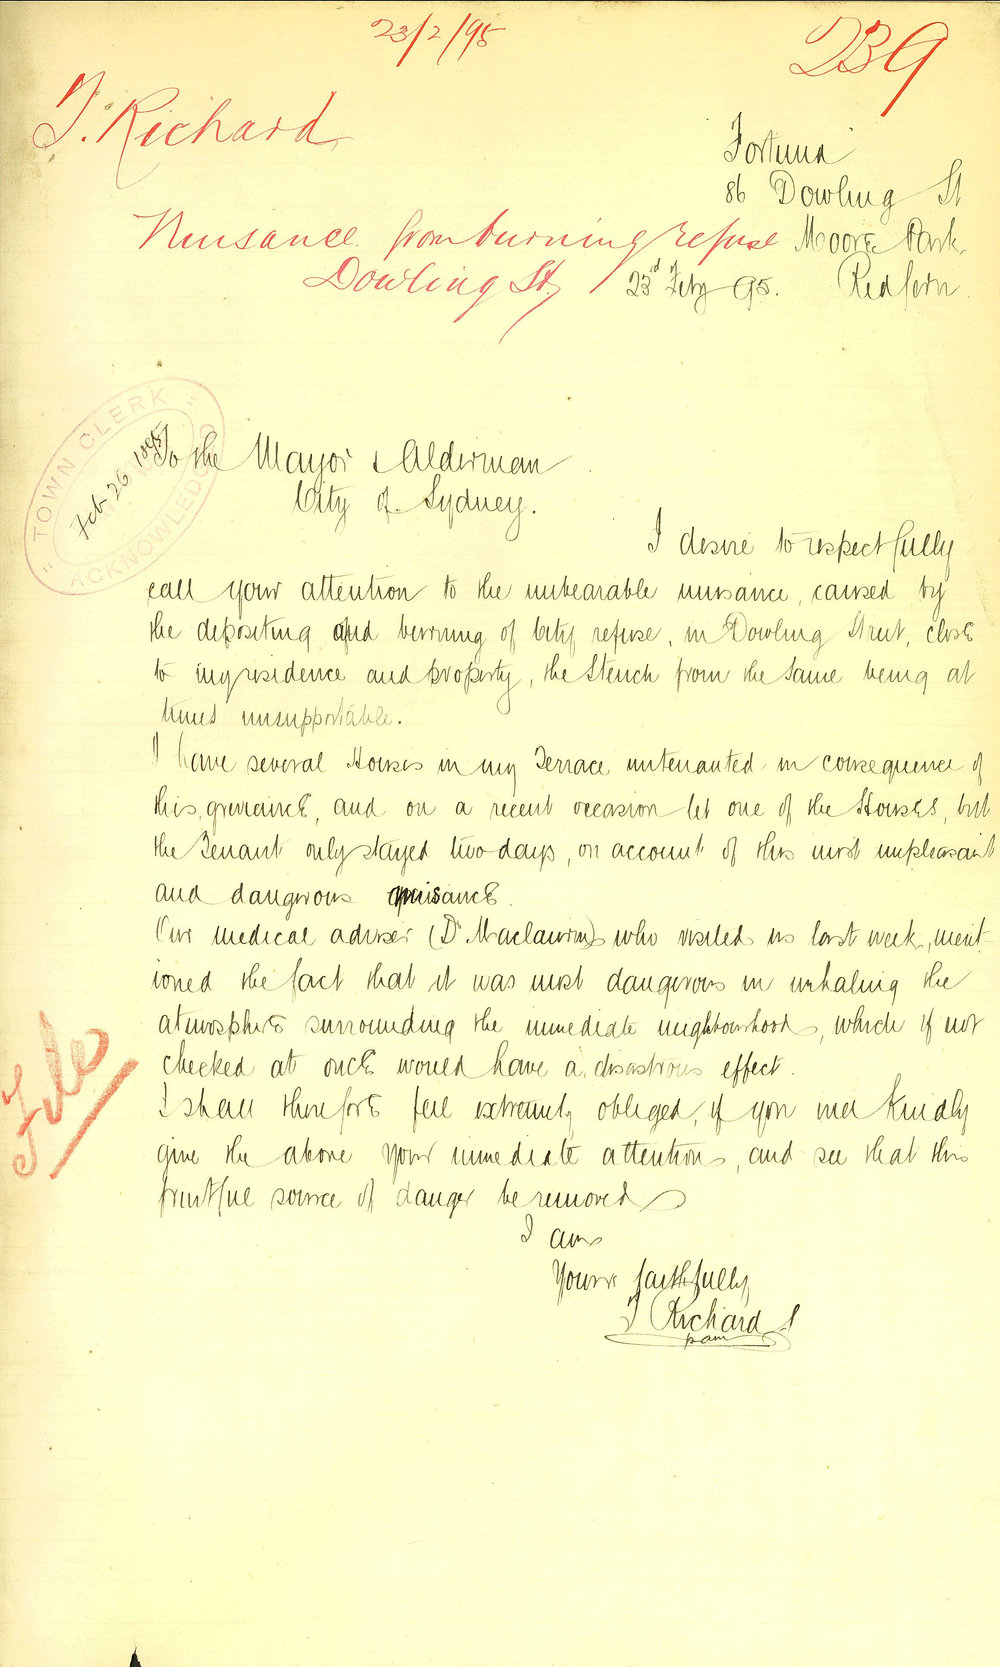 23/2/95
239
T. Richard
Fortuna
86 Dowling St
Nuisance from burning refuse Moore Park
Dowling St. 23d Feby 95. Redfern
"TOWN CLERK"
Feb 26 1895
ACKNOWLEDGED
To the Mayor & Alderman
City of Sydney.
I desire to respectfully
call your attention to the unbearable nuisance, caused by
the depositing and burning of City refuse, in Dowling Street, close
to my residence and property, the Stench from the same being at
times unsupportable.
I have several Houses in my Terrace untenanted in consequence of
this grievance, and on a recent occasion let one of the Houses, but
the Tenant only stayed two days, on account of this most unpleasant
and dangerous nuisance.
Our medical adviser (Dr Maclaurin) who visited us last week, ment-
ioned the fact that it was most dangerous in inhaling the
atmosphere surrounding the immediate neighbourhood, which if not
checked at once would have a disastrous effect.
I shall therefore feel extremely obliged, if you will kindly
give the above your immediate attention, and see that this
fruitful source of danger be removed
File
I am
Yours faithfully
T Richard